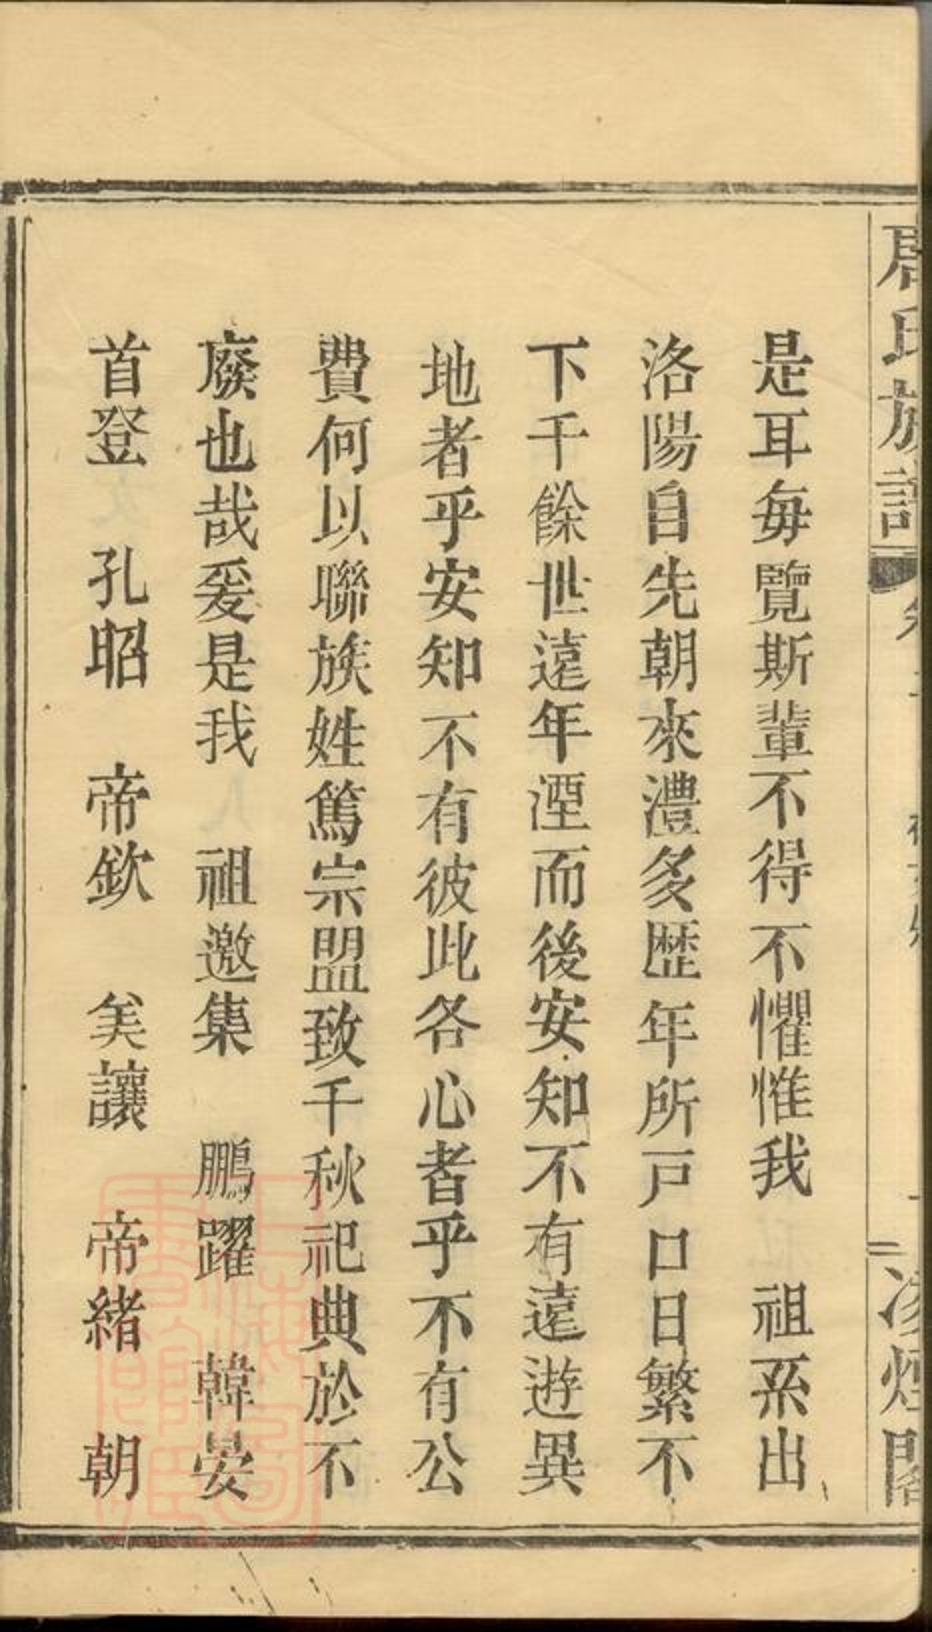 氏族譜
凌煙閣
是耳每覽斯輩不得不懼惟我　祖系出
洛陽自先朝來澧多歷年所戶口日繁不
下千餘世遠年湮而後安知不有遠遊異
地者乎安知不有彼此各心者乎不有公
費何以聯族姓篤宗盟致千秋祀典於不
廢也哉爰是我　祖邀集　鵬躍　韓晏
首登　孔昭　帝欽　矣讓　帝緒　朝